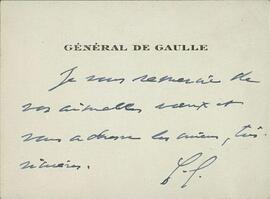 GÉNÉRAL DE GAULLE
Je vous remercie de
vos aimables vœux et
vous adresse les miens, très
sincères.